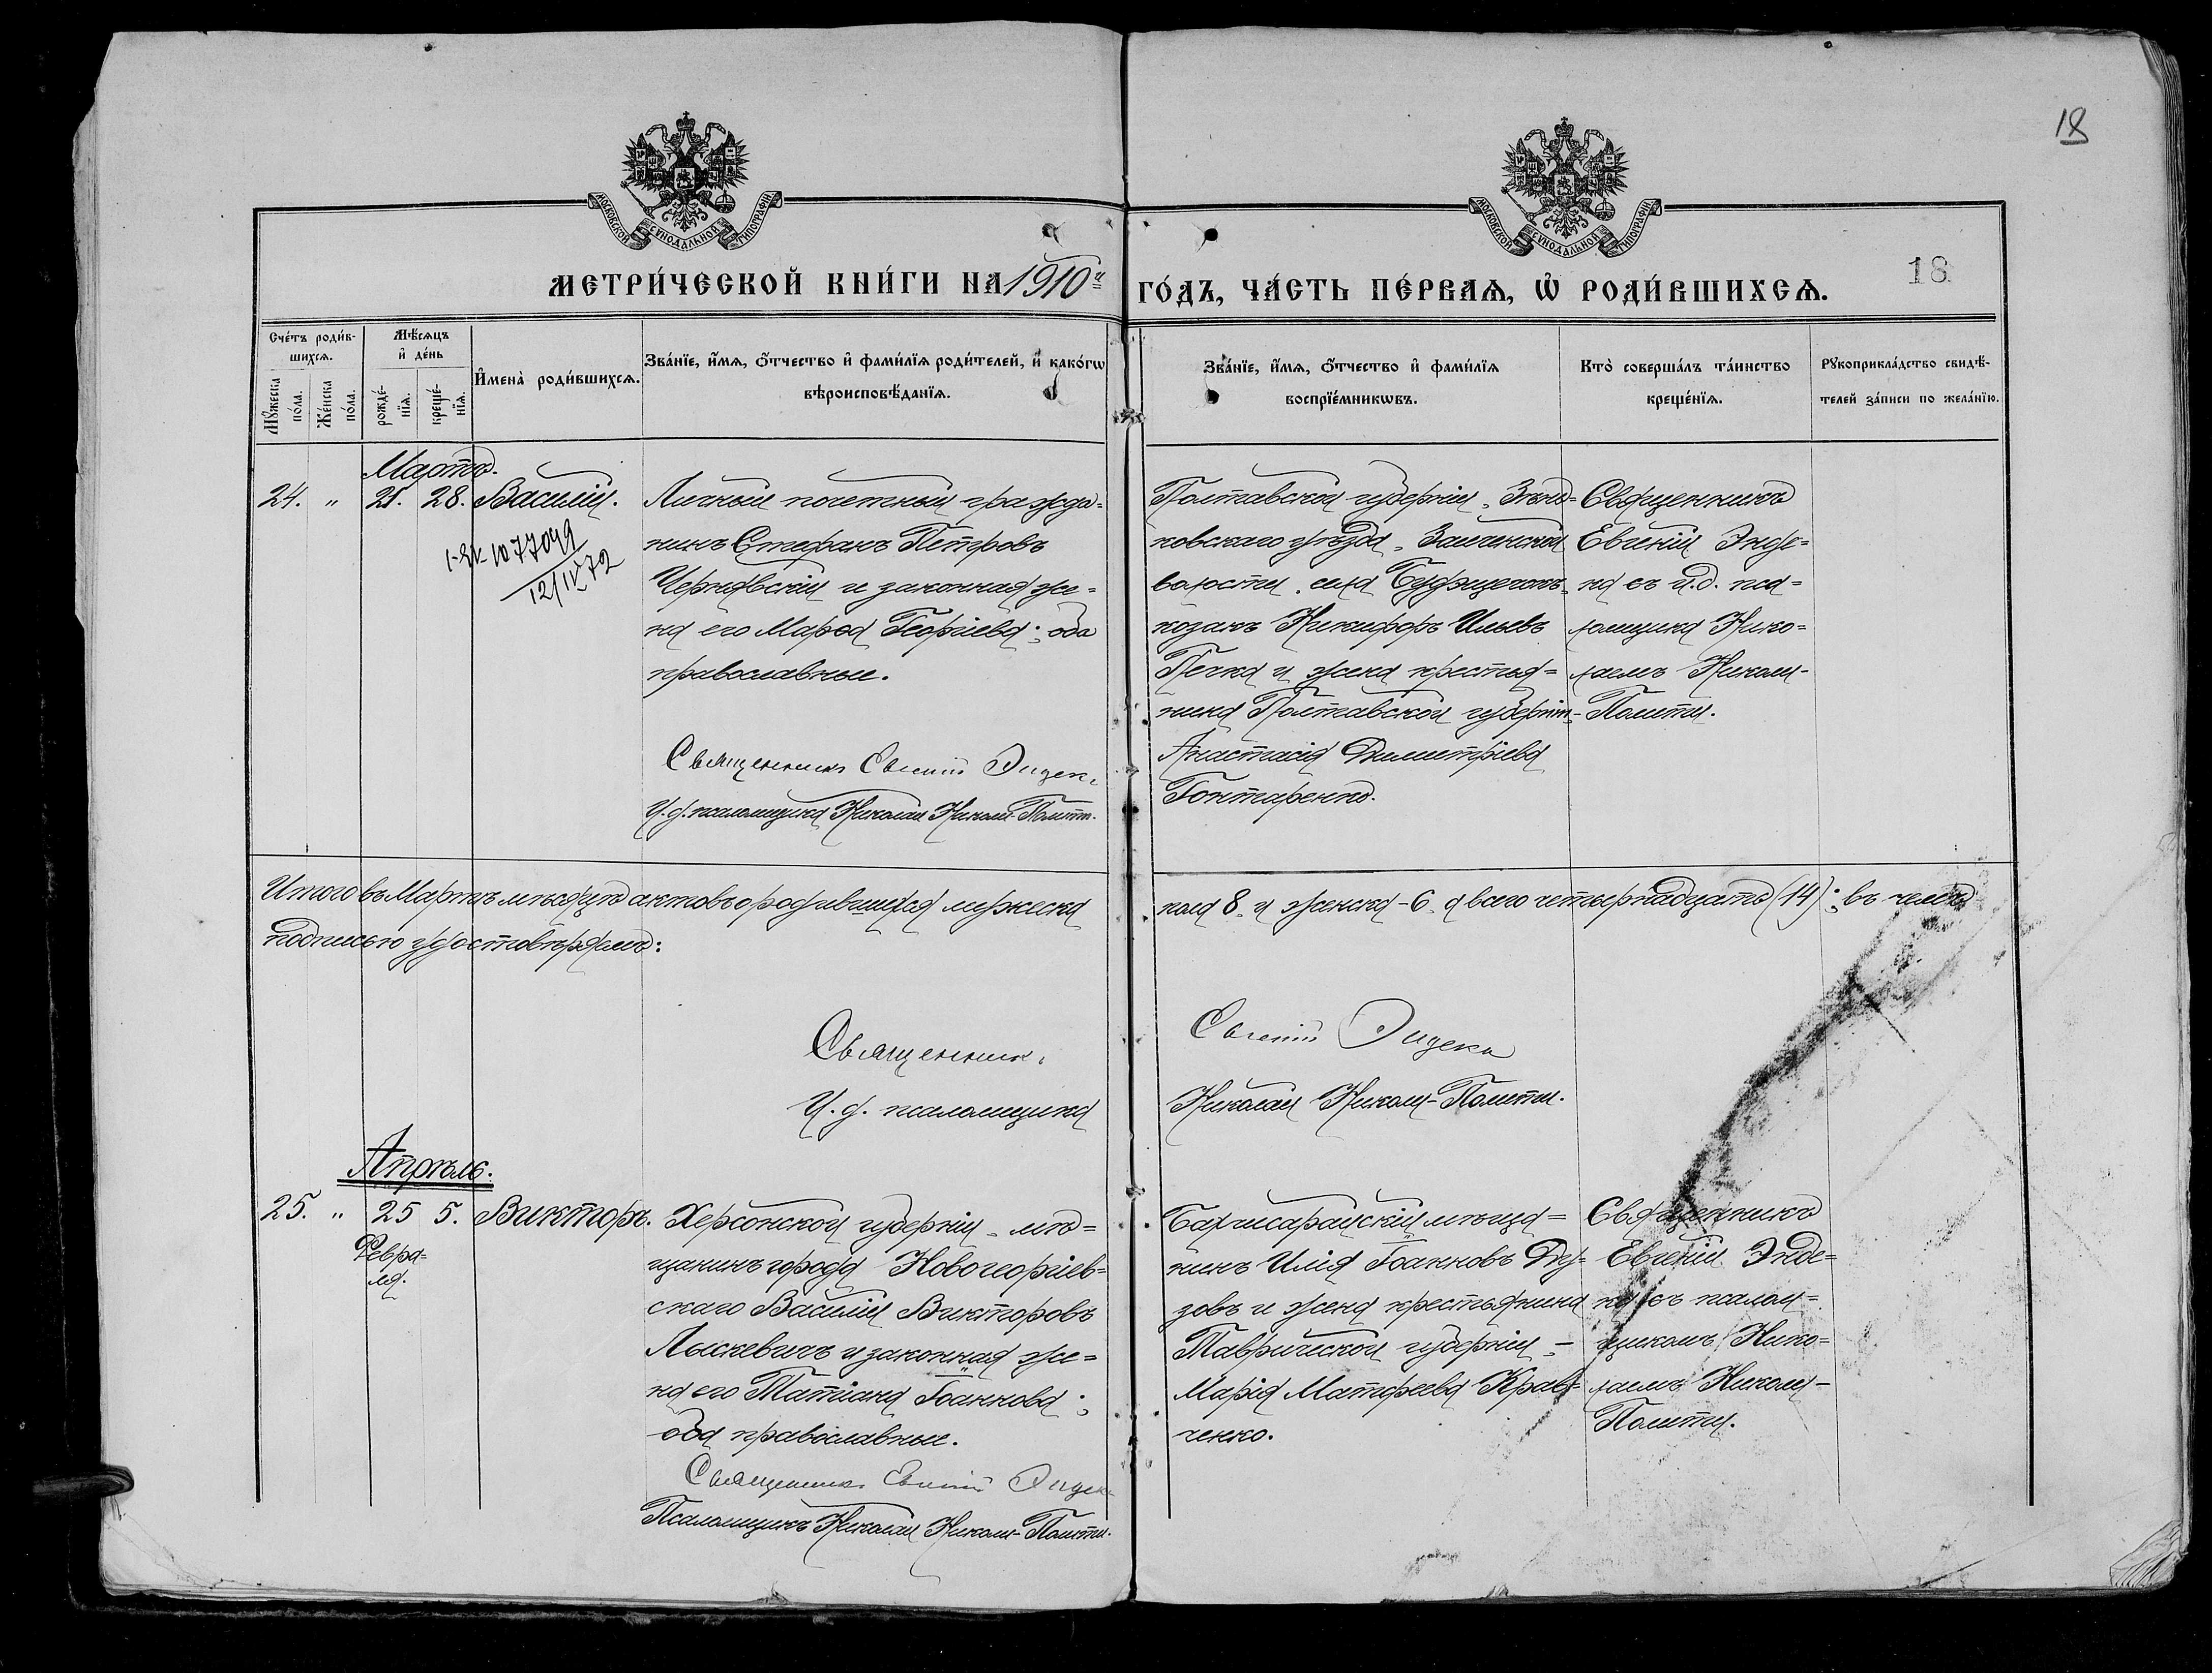 18
МОСКОВСКОЙ СѴНОДАЛЬНОЙ ТИПОГРАФІИ
МОСКОВСКОЙ СѴНОДАЛЬНОЙ ТИПОГРАФІИ
МЕТРИ́ЧЕСКОЙ КНИ́ГИ НА 1910й ГО́ДЪ, ЧА́СТЬ ПЕ́РВАѦ, Ѡ҆ РОДИ́ВШИХСѦ.
18
Сче́тъ роди́в-
шихсѧ.
Мꙋ́жеска
по́ла.
Же́нска
по́ла.
Мѣ́сѧцъ
и҆ де́нь
рожде́-
нїѧ.
креще́-
нїѧ.
И҆мена̀ роди́вшихсѧ.
Зва́нїе, и҆́мѧ, ѻ҆́тчество и҆ фами́лїѧ роди́телей, и҆ како́гѡ
вѣроисповѣ́данїѧ.
Зва́нїе, и҆́мѧ, ѻ҆́тчество и҆ фами́лїѧ
воспрїе́мникѡвъ.
Кто̀ соверша́лъ та́инство
креще́нїѧ.
Рꙋкоприкла́дство свидѣ́-
телей за́писи по жела́нїю.
Мартъ.
24. „ 21. 28. Василій.
12/IV 72
Личный почетный гражда=
нинъ Стефанъ Петровъ
Чернявскій и законная же=
на его Марѳа Георгіева; оба
православные.
Священникъ Евгеній Эндека
И. д. псаломщика Николай Николи-Полити.
Полтавской губерніи, Зѣнь=
ковскаго уѣзда,
волости, села
козакъ Никифоръ Ильевъ
Печка и жена крестья=
нина Полтавской губерніи,
Анастасія Димитріева
Гонтаренко.
Священникъ
Евгеній Энде=
ка съ и.д. пса=
ломщика Нико=
лаемъ Николи-
Полити.
Итого въ Мартѣ мѣсяцѣ актовъ о родившихся мужеска
пола 8, и женска - 6, а всего четырнадцать (14); въ чемъ
подписью удостовѣряемъ:
Священникъ
Евгеній Эндека
И. д. псаломщика
Николай Николи-Полити.
Апрѣль.
25. „ 25 5. Викторъ.
Февра=
ля.
Херсонской губерніи, мѣ=
щанинъ города Новогеоргіев=
скаго Василій Викторовъ
Лыскевичъ и законная же=
на его Татіана Іоаннова;
оба православные.
Священникъ Евгеній Эндека
Псаломщикъ Николай Николи-Полити.
Бахчисарайскій мѣща=
нинъ Илія Іоанновъ Ду=
зовъ и жена крестьянина
Таврической губерніи, -
Марія Матфеева Крав=
ченко.
Священникъ
Евгеній Энде=
ка съ псалом=
щикомъ Нико=
лаемъ Николи-
Полити.